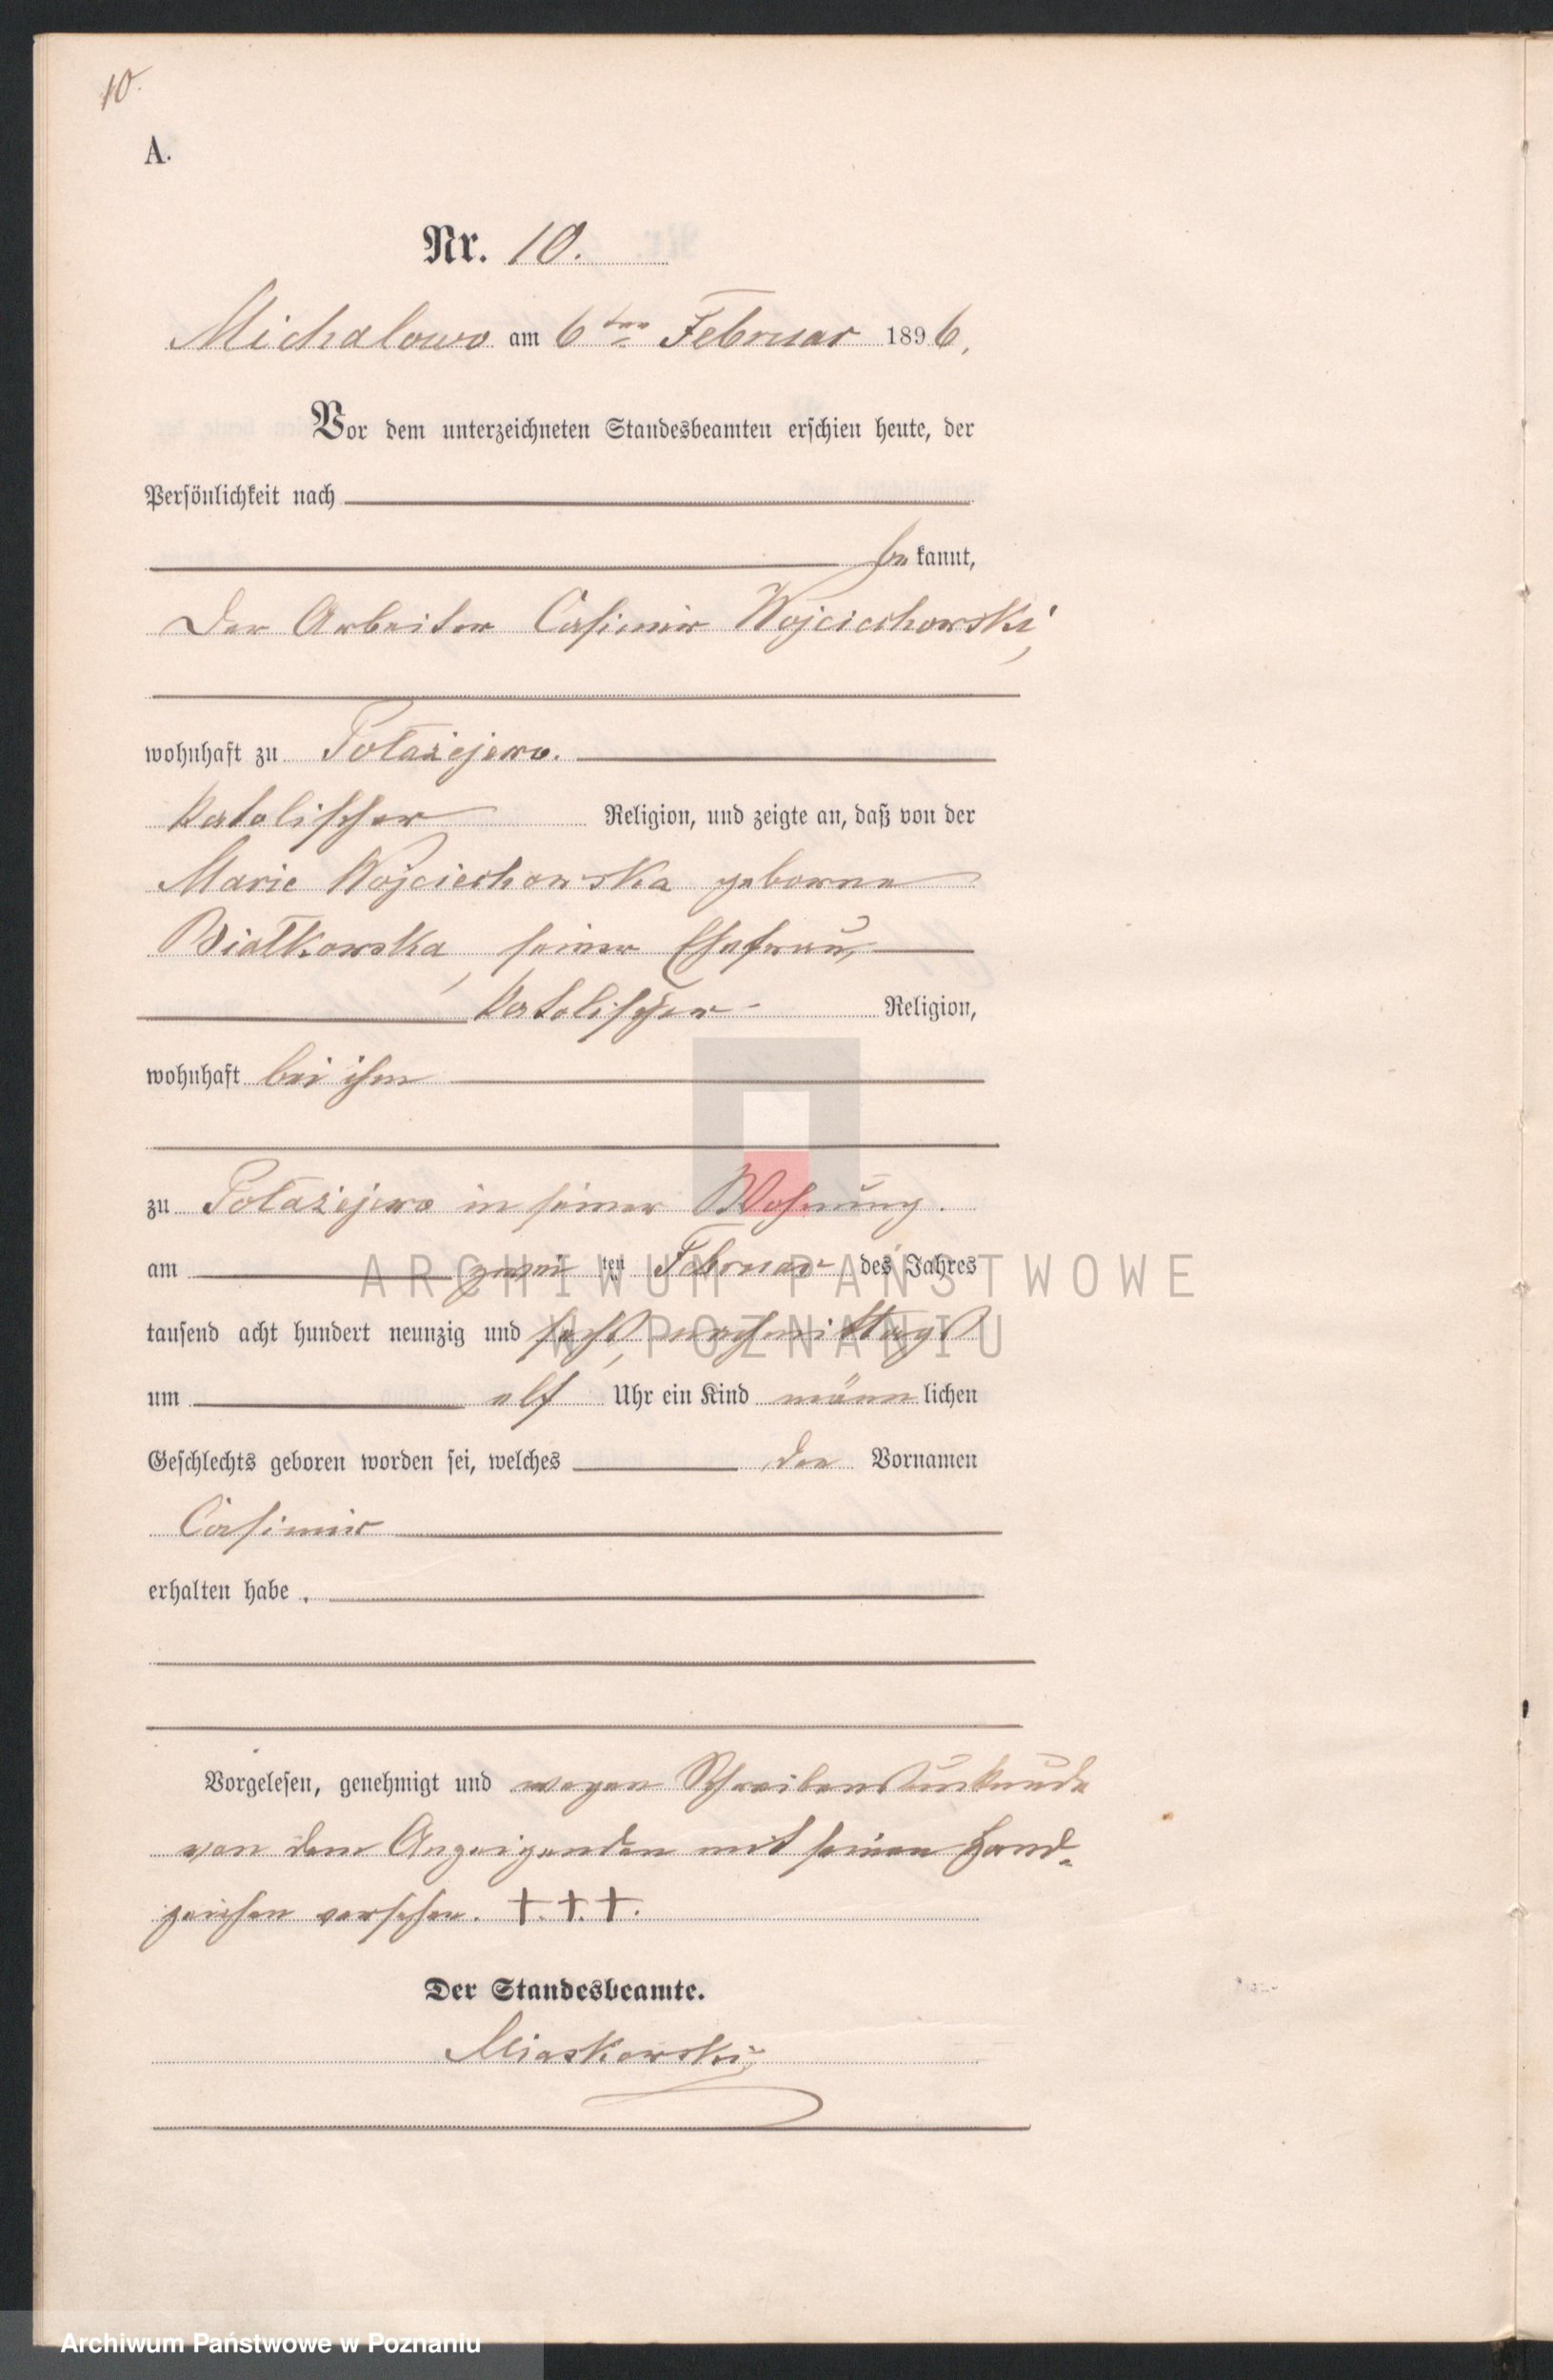 10.
A.
Nr. 10.
Michalowo am 6ten Februar 1896.
Vor dem unterzeichneten Standesbeamten erschien heute, der
Persönlichkeit nach
bekannt,
Der Arbeiter Casimir Wojciechowski,
wohnhaft zu Połażejewo.
katolischer Religion, und zeigte an, daß von der
Marie Wojciechowska geborne
Białkowska, seiner Ehefrau,
katolischer Religion,
wohnhaft bei ihm
zu Połażejewo in seiner Wohnung.
am zweiten Februar des Jahres
tausend acht hundert neunzig und sechs, nachmittags
um elf Uhr ein Kind männlichen
Geschlechts geboren worden sei, welches den Vornamen
Casimir
erhalten habe.
Vorgelesen, genehmigt und wegen Schreibensunkunde
von dem Anzeigenden mit seinen Hand-
zeichen versehen. +.+.+.
Der Standesbeamte.
Miaskowski
ARCHIWUM PAŃSTWOWE
W POZNANIU
Archiwum Państwowe w Poznaniu